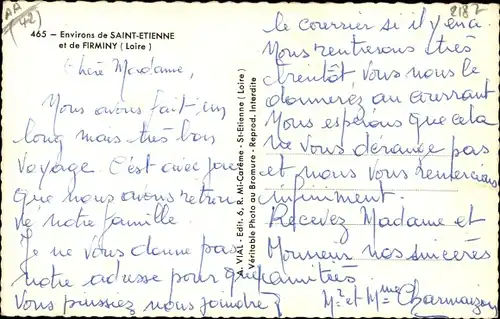 AA
(42)
2187
465 — Environs de SAINT-ETIENNE
et de FIRMINY (Loire)
Chère Madame,
Nous avons fait un
long mais très bon
voyage. C'est avec joie
que nous avons retrou
vé notre famille.
Je ne vous donne pas
notre adresse pour que
vous puissiez nous joindre
A. VIAL - Edit. 6, R. Mi-Carême - St-Etienne (Loire)
Véritable Photo au Bromure - Reprod. Interdite
le courrier si il y en a
Nous rentrerons très
bientôt vous nous le
donnerez au courant
Nous espérons que cela
ne vous dérange pas
et nous vous remercions
infiniment.
Recevez Madame et
Monsieur nos sincères
amitiés
Mr et Mme